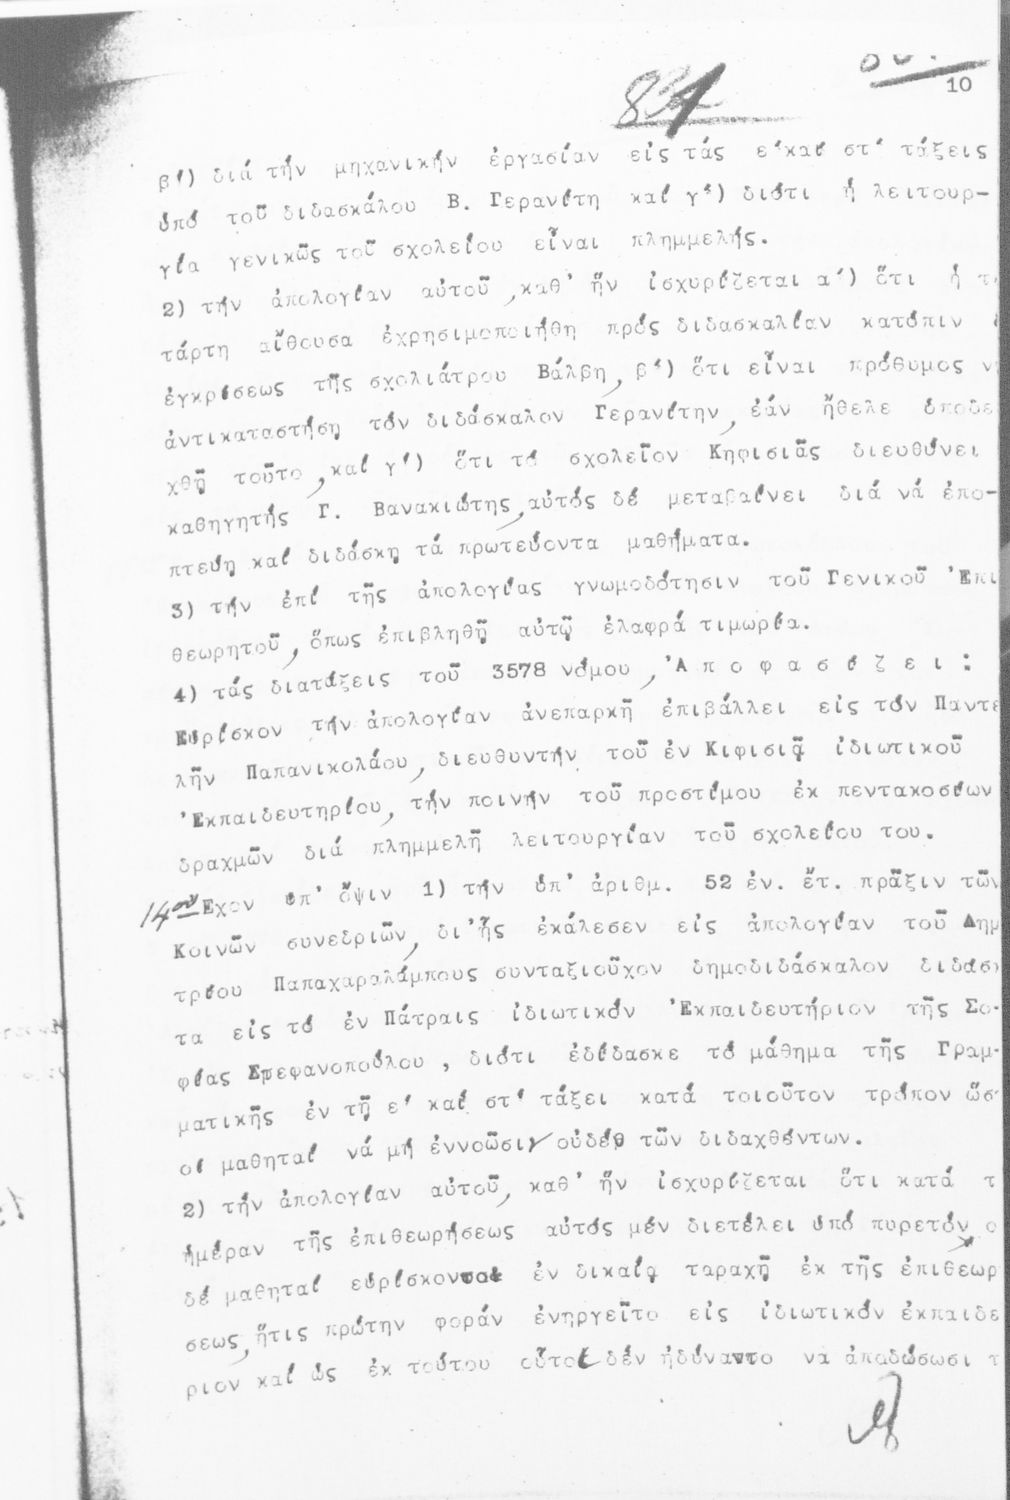 831
10
β΄) διά τήν μηχανικήν ἐργασίαν εἰς τάς ε΄καί στ΄ τάξεις
ὑπό τοῦ διδασκάλου Β. Γερανίτη καί γ΄) διότι ἡ λειτουρ-
γία γενικῶς τοῦ σχολείου εἶναι πλημμελής.
2) τήν ἀπολογίαν αὐτοῦ, καθ' ἥν ἰσχυρίζεται α΄) ὅτι ἡ τ
τάρτη αἴθουσα ἐχρησιμοποιήθη πρός διδασκαλίαν κατόπιν
ἐγκρίσεως τῆς σχολιάτρου Βάλβη, β΄) ὅτι εἶναι πρόθυμος ν
ἀντικαταστήσῃ τόν διδάσκαλον Γερανίτην, ἐάν ἤθελε ὑποδε
χθῇ τοῦτο, καί γ΄) ὅτι τό σχολεῖον Κηφισιᾶς διευθύνει
καθηγητής Γ. Βανακιώτης, αὐτός δέ μεταβαίνει διά νά ἐπο-
πτεύῃ καί διδάσκῃ τά πρωτεύοντα μαθήματα.
3) τήν ἐπί τῆς ἀπολογίας γνωμοδότησιν τοῦ Γενικοῦ 'Επι
θεωρητοῦ, ὅπως ἐπιβληθῇ αὐτῷ ἐλαφρά τιμωρία.
4) τάς διατάξεις τοῦ 3578 νόμου, 'Α π ο φ α σ ί ζ ε ι :
Εὑρίσκον τήν ἀπολογίαν ἀνεπαρκῆ ἐπιβάλλει εἰς τόν Παντε
λῆν Παπανικολάου, διευθυντήν τοῦ ἐν Κιφισιᾷ ἰδιωτικοῦ
'Εκπαιδευτηρίου, τήν ποινήν τοῦ προστίμου ἐκ πεντακοσίων
δραχμῶν διά πλημμελῆ λειτουργίαν τοῦ σχολείου του.
14ον Εχον ὑπ' ὄψιν 1) τήν ὑπ' ἀριθμ. 52 ἐν. ἔτ. πρᾶξιν τῶν
Κοινῶν συνεδριῶν, δι'ἧς ἐκάλεσεν εἰς ἀπολογίαν τοῦ Δημ
τρίου Παπαχαραλάμπους συνταξιοῦχον δημοδιδάσκαλον διδάσκ
τα εἰς τό ἐν Πάτραις ἰδιωτικόν 'Εκπαιδευτήριον τῆς Σο-
φίας Στεφανοπούλου, διότι ἐδίδασκε τό μάθημα τῆς Γραμ-
ματικῆς ἐν τῇ ε΄ καί στ΄ τάξει κατά τοιοῦτον τρόπον ὥσ
οἱ μαθηταί νά μή ἐννοῶσιν οὐδέν τῶν διδαχθέντων.
2) τήν ἀπολογίαν αὐτοῦ, καθ' ἥν ἰσχυρίζεται ὅτι κατά τ
ἡμέραν τῆς ἐπιθεωρήσεως αὐτός μέν διετέλει ὑπό πυρετόν, ο
δέ μαθηταί εὑρίσκοντο ἐν δικαίᾳ ταραχῇ ἐκ τῆς ἐπιθεωρ
σεως, ἥτις πρώτην φοράν ἐνηργεῖτο εἰς ἰδιωτικόν ἐκπαιδε
ριον καί ὡς ἐκ τούτου οὗτοι δέν ἠδύναντο να ἀποδώσωσι τ